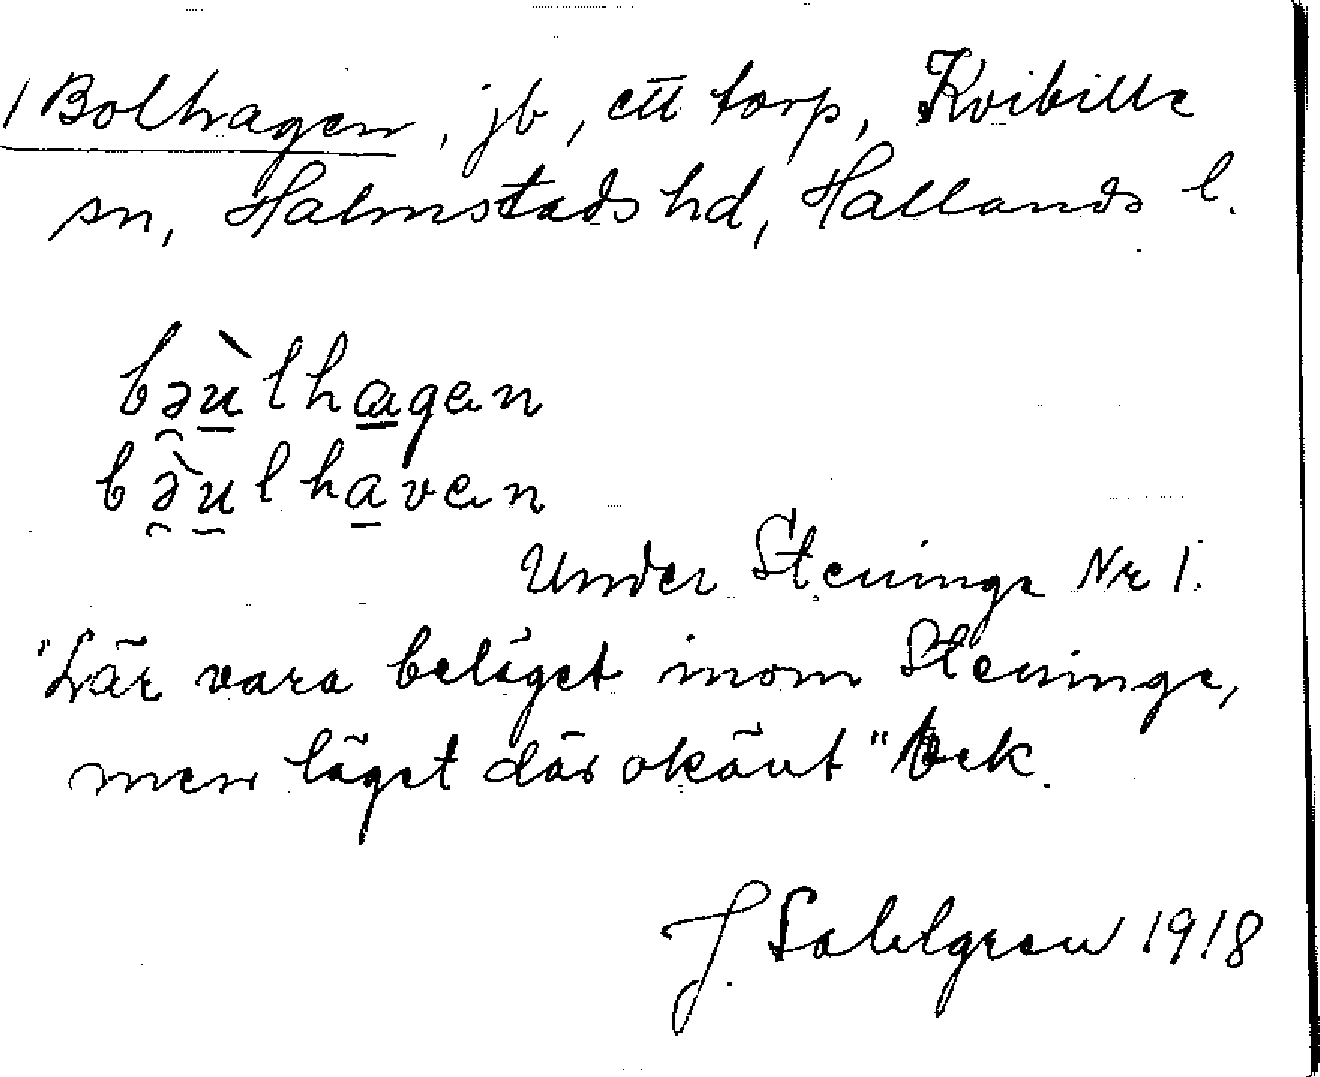 1 Bolhagen, jb, ett torp, Kvibille
sn, Halmstads hd, Hallands l.
bəùlhagen
bə̀ulhaven
Under Steninge Nr 1.
"Lär vara beläget inom Steninge,
men läget där okänt" Bek.
J. Sahlgren 1918